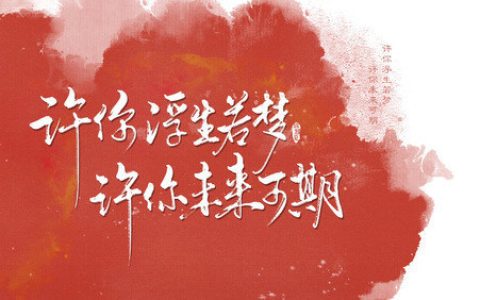 许你浮生若梦
许你未来可期
许你浮生若梦
许你未来可期